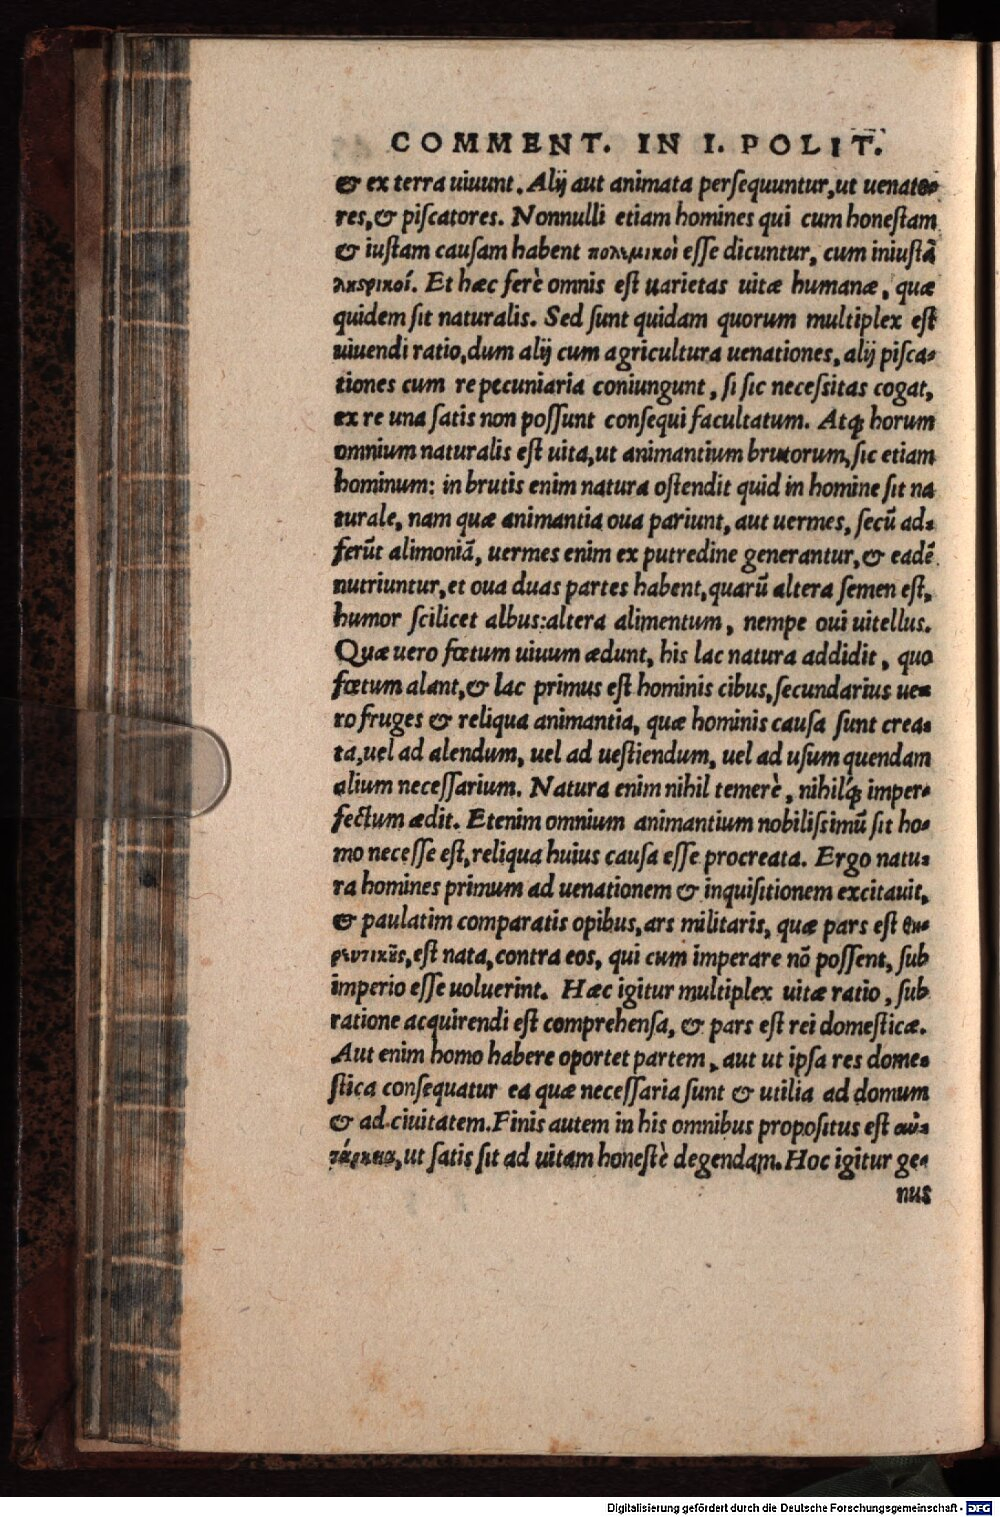 COMMENT. IN I. POLIT.
& ex terra uiuunt. Alij aut animata persequuntur, ut uenato-
res, & piscatores. Nonnulli etiam homines qui cum honestam
& iustam causam habent πολεμικοὶ esse dicuntur, cum iniustã
λῃςρικοί. Et hæc ferè omnis est uarietas uitæ humanæ, quæ
quidem sit naturalis. Sed sunt quidam quorum multiplex est
uiuendi ratio, dum alij cum agricultura uenationes, alij pisca-
tiones cum re pecuniaria coniungunt, si sic necessitas cogat,
ex re una satis non possunt consequi facultatum. Atq; horum
omnium naturalis est uita, ut animantium brutorum, sic etiam
hominum: in brutis enim natura ostendit quid in homine sit na
turale, nam quæ animantia oua pariunt, aut uermes, secũ ad-
ferũt alimoniã, uermes enim ex putredine generantur, & eadẽ
nutriuntur, et oua duas partes habent, quarũ altera semen est,
humor scilicet albus: altera alimentum, nempe oui uitellus.
Quæ uero fœtum uiuum ædunt, his lac natura addidit, quo
fœtum alant, & lac primus est hominis cibus, secundarius ue-
ro fruges & reliqua animantia, quæ hominis causa sunt crea-
ta, uel ad alendum, uel ad uestiendum, uel ad usum quendam
alium necessarium. Natura enim nihil temerè, nihilq́; imper-
fectum ædit. Etenim omnium animantium nobilissimũ sit ho-
mo necesse est, reliqua huius causa esse procreata. Ergo natu-
ra homines primum ad uenationem & inquisitionem excitauit,
& paulatim comparatis opibus, ars militaris, quæ pars est θη-
ρευτικῆς, est nata, contra eos, qui cum imperare nõ possent, sub
imperio esse uoluerint. Hæc igitur multiplex uitæ ratio, sub
ratione acquirendi est comprehensa, & pars est rei domesticæ.
Aut enim homo habere oportet partem, aut ut ipsa res dome-
stica consequatur ea quæ necessaria sunt & utilia ad domum
& ad ciuitatem. Finis autem in his omnibus propositus est αὐ-
τάρκεια, ut satis sit ad uitam honestè degendam. Hoc igitur ge-
nus
Digitalisierung gefördert durch die Deutsche Forschungsgemeinschaft - DFG